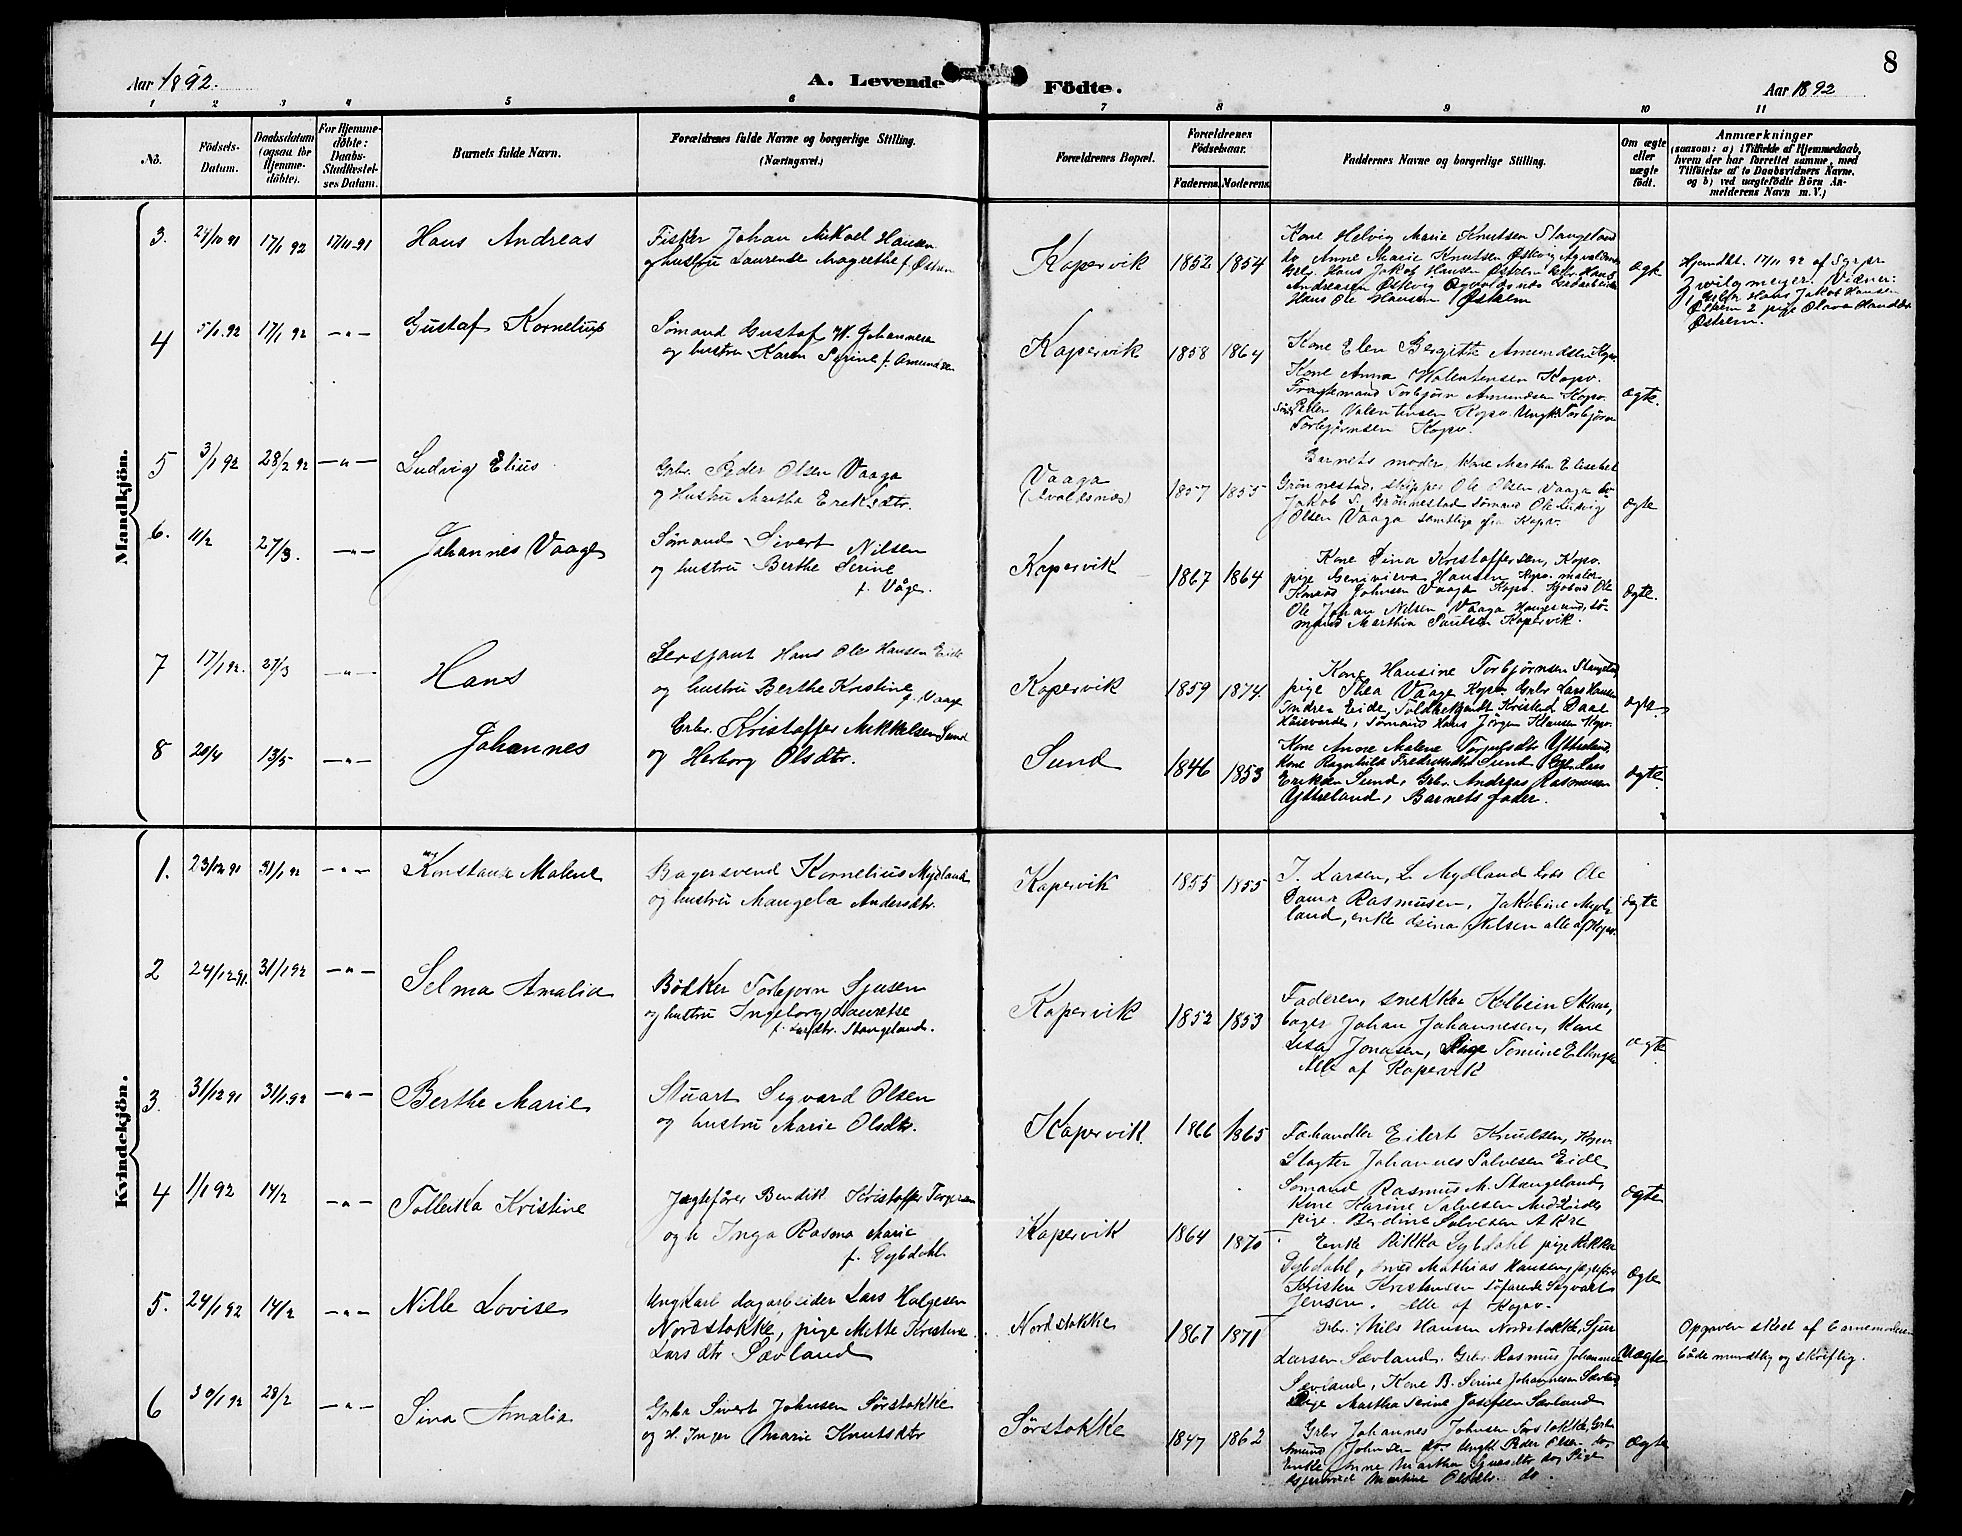 8
Aar 1892.
A. Levende Födte.
Aar 1892
1 2 3 4 5 6 7 8 9 10 11
No.
Födsels-Datum.
Daabsdatum (ogsaa for Hjemmedöbte).
For Hjemmedöbte: Daabs-Stadfæstelses Datum.
Barnets fulde Navn.
Forældrenes fulde Navne og borgerlige Stilling.
(Næringsvei.)
Forældrenes Bopæl.
Forældrenes Födselsaar.
Faderens. Moderens.
Faddernes Navne og borgerlige Stilling.
Om ægte eller uægte födt.
Anmærkninger
(saasom: a) i Tilfælde af Hjemmedaab,
hvem der har forrettet samme, med
Tilföielse af to Daabsvidners Navne,
og b) ved uægtefödte Börn Anmelderens Navn m. V.)
Mandkjön.
3. 24/10 91 17/1 92 17/11-91 Hans Andreas
Fisker Johan Mikael Hansen
og hustru Laurense Magrethe f. Østrem
Kopervik 1852 1854
Kone Helvig Marie Knutsen Stangeland
do Anne Marie Knutsen Østvig Agvaldsnes
Grbr. Hans Jakob Hansen Østrem
Andreasen Østvig
Hans Ole Hansen Østrem
Hjemdbt. 17/11 92 af Sgpr
Zwilgmeyer. Vidner:
1, Grbr Hans Jakob Hansen
Østrem 2 pige Olava
Østrem.
4 5/1.92 17/1 92 -"- Gustaf Kornelius
Sømand Gustaf W. Johannesen
og hustru Karen Serine f. Amundsen
Kopervik 1858 1864
Kone Elen Bergitte Amundsen Kopv.
Kone Anna Walentensen Kopv.
Fragtemand Torbjørn Amundsen Kopv.
Peder Valentensen Kopv. Ungk. Torbjørn
Torbjørnsen Kopv.
ægte.
5 3/1 92 28/2 92 -"- Ludvig Elius
Grbr. Peder Olsen Vaaga
og Hustru Martha Eriksdtr.
Vaaga
(Avaldsnæs)
1857 1855
Barnets moder, Kone Martha Elisebet
Grønnestad, skipper Ole Olsen Vaaga do
Jakob S. Grønnestad Sømand Ole Ludvig
Olsen Vaaga samtlige fra Kopv.
ægte
6. 11/2 27/3. -"- Johannes Vaage
Sømand Sivert Nilsen
og hustru Berthe Serine
f. Våge.
Kopervik 1867 1864
Kone Sina Kristoffersen, Kopv.
pige Genivieva Hansen Kopv. maler
Konrad Johnsen Vaaga Kopv.
Ole Johan Nilsen Vaaga Haugesund, sømand
Marthin Paulsen Kopervik.
ægte.
7 17/1 92. 27/3 -"- Hans
Sersjant Hans Ole Hansen Eide
og hustru Berthe Kristine f. Vaage
Kopervik 1859 1874
Kone Hansine Torbjørnsen Stangeland
pige Thea Vaage Kopv. Grbr Lars Hansen
Indre Eide, Kristen Daae
Sømand Hans Jørgen Klausen Kopv.
ægte.
8 20/4 13/5 -"- Johannes
Grbr. Kristoffer Mikkelsen Sund
og Herborg Olsdtr.
Sund 1846 1853
Kone Anne Malene Torgilsdtr Ytreland,
Kone Ragnhild Sund Grbr. Lars
Eriksen Sund, Grbr. Andreas Rasmusen
Yttreland, Barnets fader.
ægte.
Kvindekjön.
1. 23/12 91 31/1 92 -"- Konstanze Malene
Bagersvend Kornelius Mydland
og hustru Mangela Andersdtr.
Kopervik 1855 1855
J. Larsen, L. Mydland Lods Ole
Rasmusen, Jakobine Mydland,
enke Nilsen alle af Kopv.
ægte
2 24/12-91. 31/1 92 -"- Selma Amalia
Bødker Torbjørn Sjusen
og hustru Ingeborg Lauretse
f. Larsdtr. Stangeland.
Kopervik 1852 1853
Faderen, snekker Kolbein
bager Johan Johannesen, Kone
Lisa Jonasen, Pige Tomine
Alle af Kopervik
ægte
3. 31/12 91 31/1.92 -"- Berthe Marie
Stuart Segvard Olsen
og hustru Marie Olsdtr.
Kopervik. 1866 1865
Fæhandler Eilert Knudsen, Kopv.
Slagter Johannes Salvesen Eide
Sømand Rasmus M. Stangeland,
Kone Karine Salvesen
pige. Berdine Salvesen Akre
ægte
4 1/1 92 14/2 -"- Tolleka Kristine
Jægtefører Bendik Kristoffer Torgersen
og h. Inga Rasma Marie
f. Gybdahl.
Kopervik 1864 1870
Enke Rikka Gybdahl pige Rikka
Gybdahl, smed Mathias Hansen, jægtefører
Kristen Kristensen søfarende Segvart
Jensen. alle af Kopv.
ægte
5. 24/1 92 14/2 -"- Nille Lovise
Ungkarl dagarbeider Lars Helgesen
Nordstokke, pige Mette Kristine
Larsdtr Sævland
Nordstokke 1867 1871
Grbr. Nils Hansen Nordstokke, Sjur
Larsen Sævland. Grbr. Rasmus Johannesen
Sævland, Kone B. Serine Johannesen Sævland
Pige Martha Serine Josefsen Sævland
Uægte
Opgaven skeet af barnemoderen
både mundtlig og skriftlig.
6 30/1 92 28/2 -"- Sina Amalia
Grbr Sivert Johnsen Sørstokke
og H. Inger Marie Knutsdtr
Sørstokke 1847 1862
Grbr Johannes Johnsen Sørstokke, Grbr
Amund Johnsen do. Ungk Peder Olsen do,
Enke Anne Martha do, Pige
Martine Olsdtr. do.
ægte